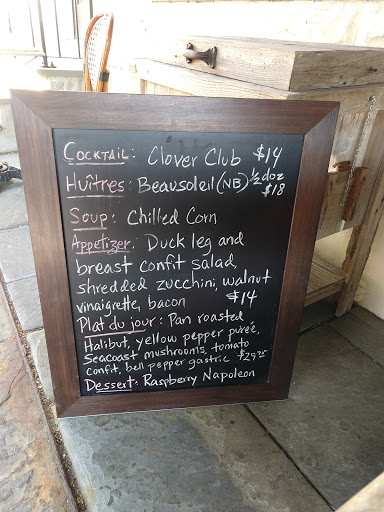 Cocktail: Clover Club $14
Huîtres: Beausoleil (NB) 1/2 doz
$18
Soup: Chilled Corn
Appetizer: Duck leg and
breast confit salad,
shredded zucchini, walnut
vinaigrette, bacon $14
Plat du jour: Pan roasted
Halibut, yellow pepper purée,
Seacoast mushrooms, tomato
confit, bell pepper gastric $29.75
Dessert: Raspberry Napoleon